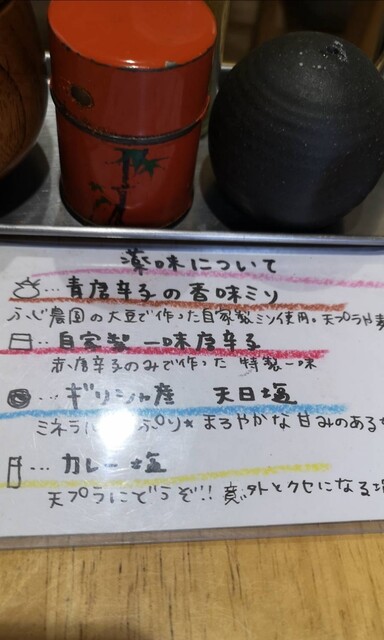 薬味について
…青唐辛子の香味ミソ
ふじ農園の大豆で作った自家製ミソ使用。天プラや
…自家製 一味唐辛子
赤唐辛子のみで作った 特製一味
…ギリシャ産 天日塩
ミネラ ぷり★ まろやかな甘みのある
…カレー塩
天プラにどうぞ!! 意外とクセになる